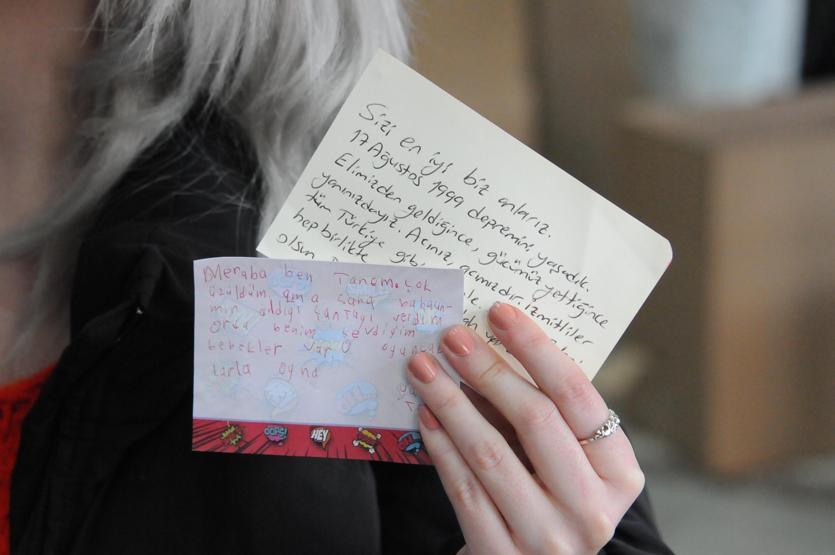 Sizi en iyi biz anlarız.
17 Ağustos 1999 depremini yaşadık.
Elimizden geldiğince, gücümüz yettiğince
yanınızdayız. Acınız acımızdır. İzmitliler
tüm Türkiye gibi
hep birlikte
olsun
Meraba ben Tanem. çok
üzüldüm ama sana babaan-
min aldığı çantayı verdim
Orda benim sevdiyim
bebekler var O
tarla oyna
OOPS!
HEY